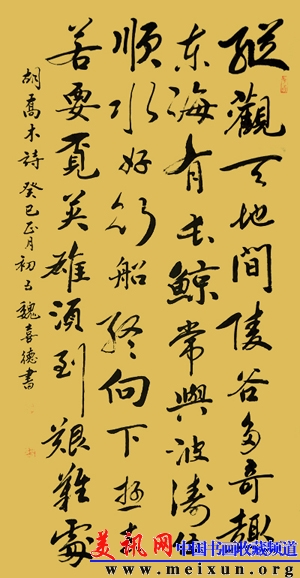 縱觀天地間陵谷多奇趣
東海有長鯨常與波濤住
順水好行船終向下游去
若要覓英雄須到艱難處
胡喬木詩 癸巳正月初 魏喜德書
美讯网 中国书画收藏频道
www.meixun.org